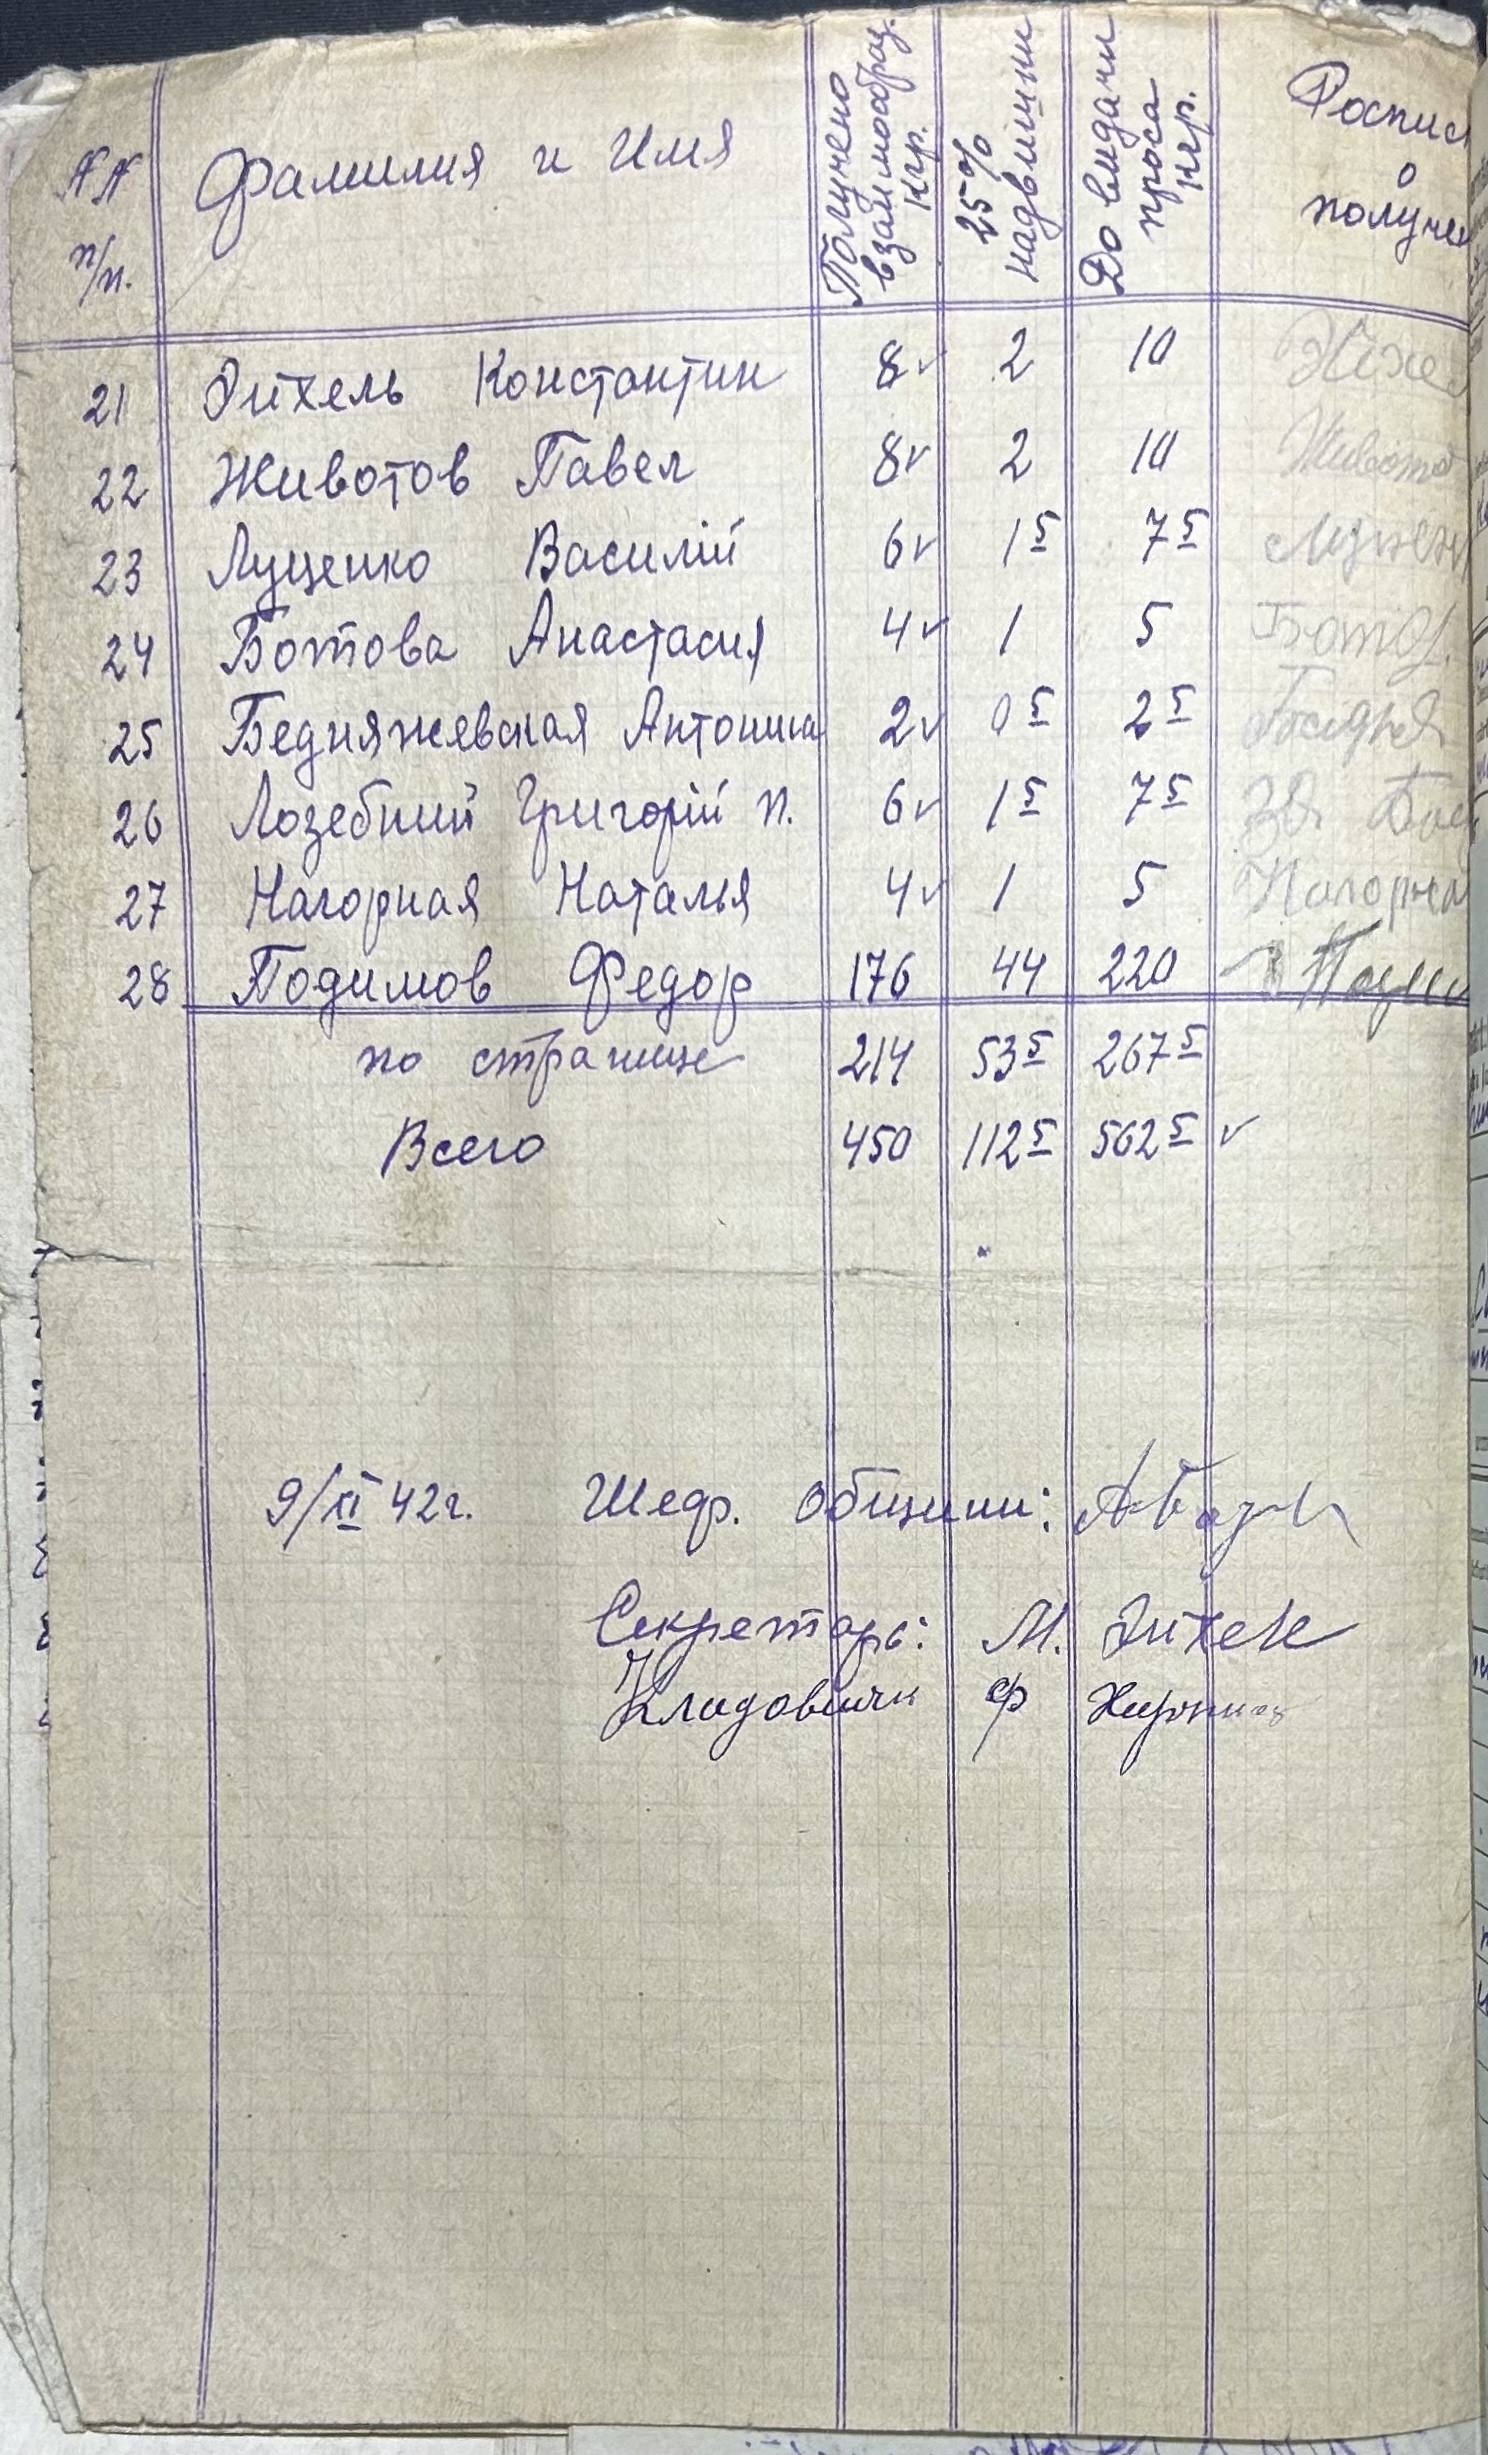 №№ п/п. Фамилия и Имя Получено взаимообраз. кгр. 25% надвишки До видачи проса кгр. Роспис о получен
21 Эйхель Константин 8 ✓ 2 10
22 Животов Павел 8 ✓ 2 10 Живото
23 Луценко Василій 6 ✓ 1 5 7 5
24 Ботова Анастасия 4 ✓ 1 5 Бот
25 Бедняжевская Антонина 2 ✓ 0 5 2 5
26 Лозебний Григорій П. 6 ✓ 1 5 7 5
27 Нагорная Наталья 4 ✓ 1 5 Нагорна
28 Подимов Федор 176 44 220
по странице 214 53 5 267 5
Всего 450 112 5 562 5 ✓
9/XI 42г. Шефр. общини:
Секретарь: М. Эйхель
Кладовщик Ф